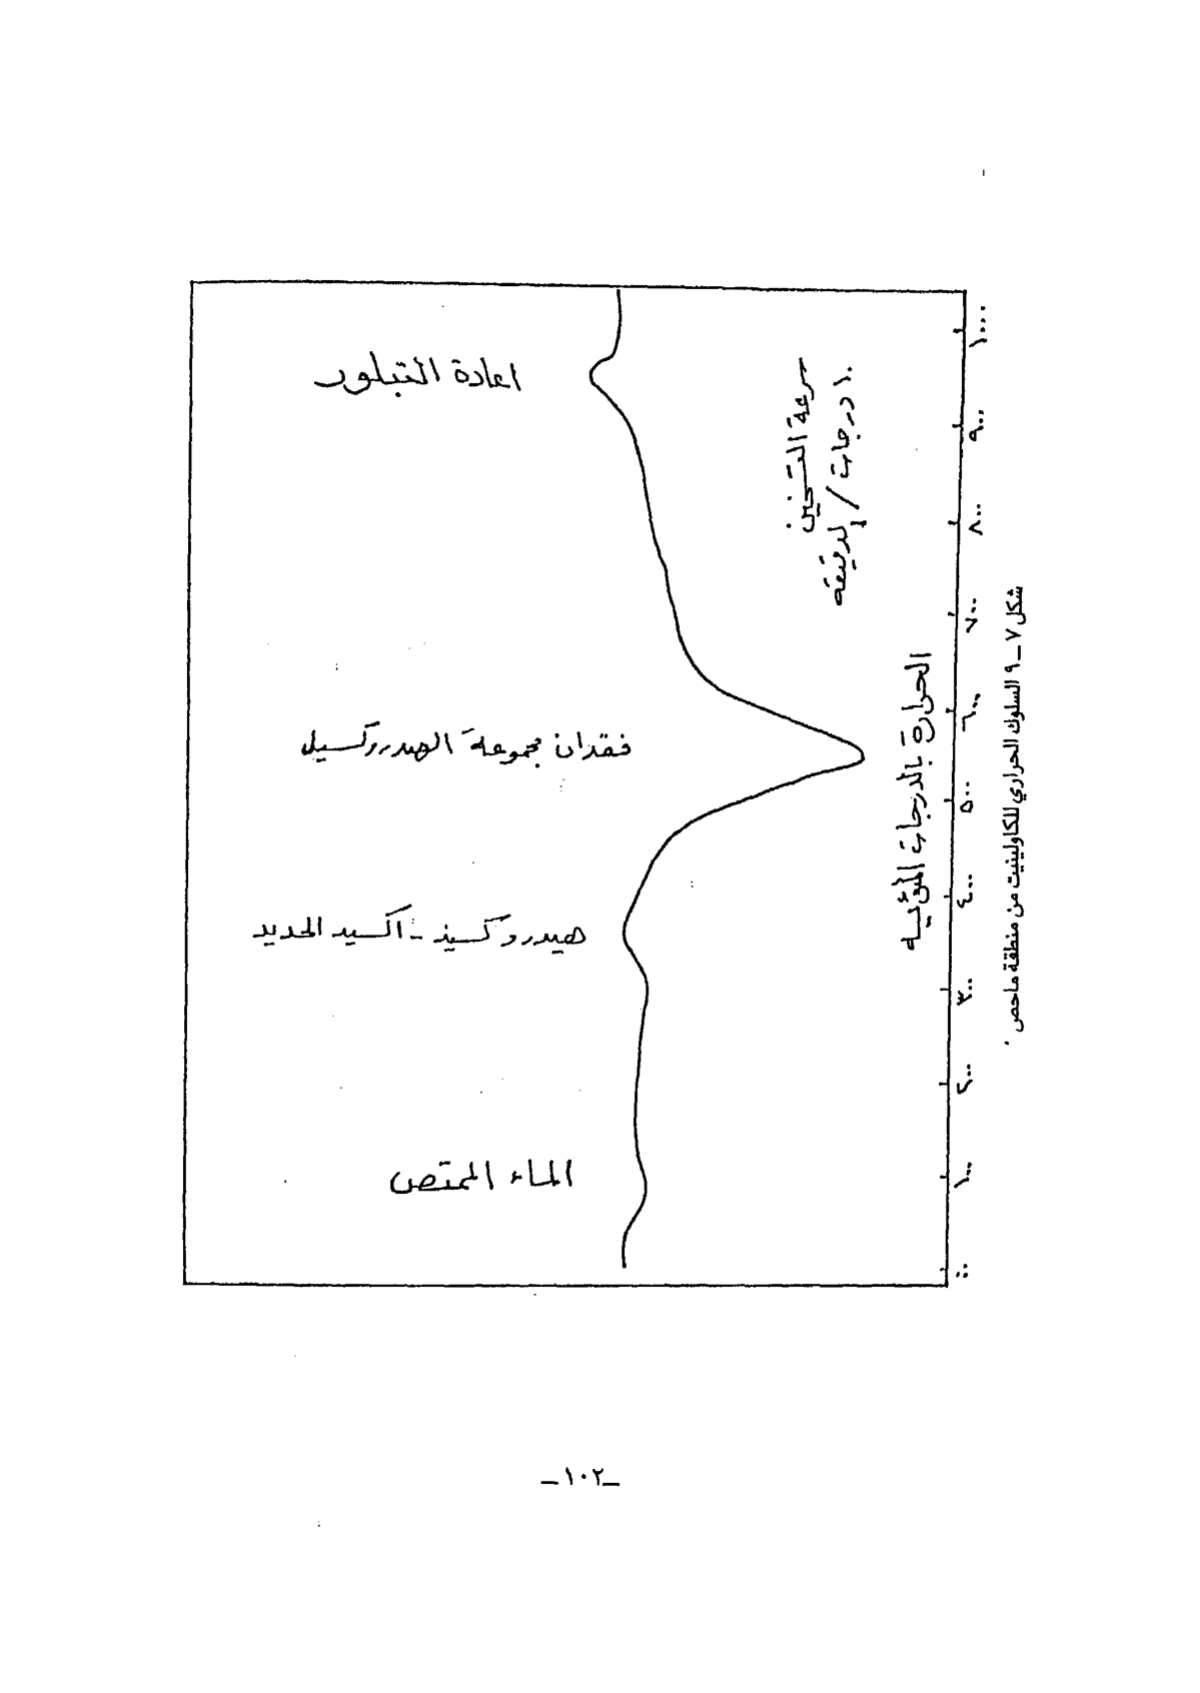 اعادة التبلور
فقدان مجموعة الهيدروكسيل
هيدروكسيد - اكسيد الحديد
الماء الممتص
سرعة التسخين
١٠ درجات / لدقيقه
الحرارة بالدرجات المئويه
١٠٠٠
٩٠٠
٨٠٠
٧٠٠
٦٠٠
٥٠٠
٤٠٠
٣٠٠
٢٠٠
١٠٠
شكل ٧ – ٩ السلوك الحراري للكاولينيت من منطقة ماحص .
– ١٠٢ –